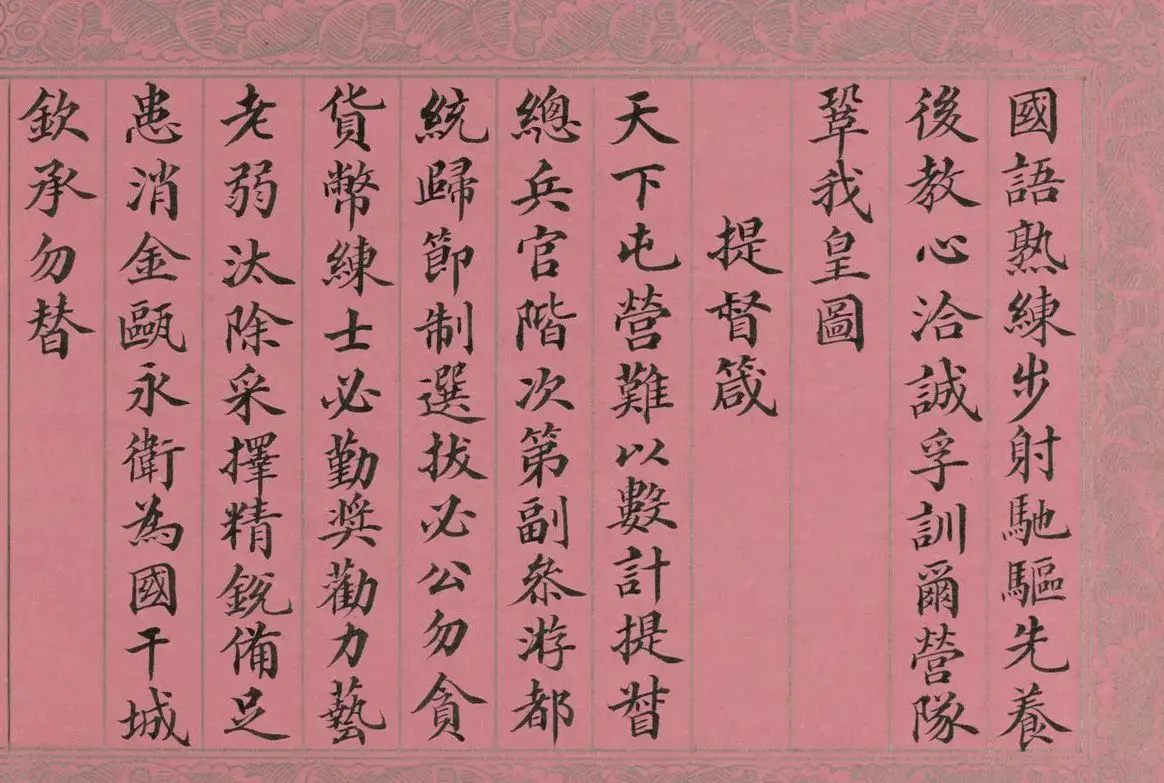 國語熟練步射馳驅先養
後教心洽誠孚訓爾營隊
鞏我皇圖
提督箴
天下屯營難以數計提督
總兵官階次第副叅游都
統歸節制選拔必公勿貪
貨幣練士必勤奬勸力藝
老弱汰除采擇精銳備足
患消金甌永衛為國干城
欽承勿替